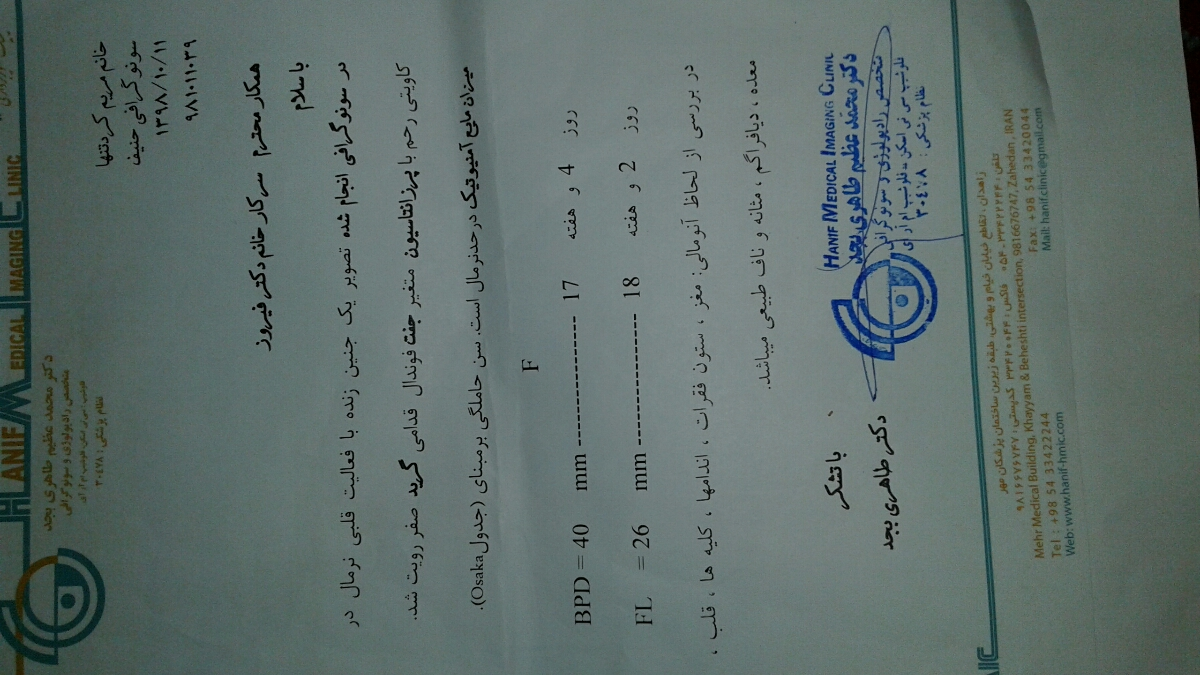 HANIF MEDICAL IMAGING CLINIC
دکتر محمد عظیم طاهری بجد
متخصص رادیولوژی و سونوگرافی
نظام پزشکی: ۳۰۴۷۸
خانم مریم کردتنها
سونوگرافی حنیف
۱۳۹۸/۱۰/۱۱
۹۸۱۰۱۱۰۳۹
همکار محترم سرکار خانم دکتر فیروز
با سلام
در سونوگرافی انجام شده تصویر یک جنین زنده با فعالیت قلبی نرمال در
کاویتی رحم با پرزانتاسیون متغیر جفت فوندال قدامی گرید صفر رویت شد.
میزان مایع آمنیوتیک در حدنرمال است. سن حاملگی برمبنای (جدول Osaka).
F
BPD = 40 mm ------------------ 17 هفته و 4 روز
FL = 26 mm ------------------ 18 هفته و 2 روز
در بررسی از لحاظ آنومالی: مغز ، ستون فقرات ، اندامها ، کلیه ها ، قلب ،
معده ، دیافراگم ، مثانه و ناف طبیعی میباشد.
با تشکر
دکتر طاهری بجد
HANIF MEDICAL IMAGING CLINIC
دکتر محمد عظیم طاهری بجد
متخصص رادیولوژی و سونوگرافی
فلوشیپ سی تی اسکن - فلوشیپ ام آر آی
نظام پزشکی: ۳۰۴۷۸
زاهدان، تقاطع خیابان خیام و بهشتی، طبقه زیرین ساختمان پزشکان مهر
تلفن: ۳۳۴۲۲۲۴۴ - ۰۵۴ فاکس: ۳۳۴۲۰۰۴۴ کدپستی: ۹۸۱۶۶۷۶۷۴۷
Mehr Medical Building, Khayyam & Beheshti intersection, 9816676747, Zahedan, IRAN
Tel : +98 54 33422244 Fax: +98 54 33420044
Web: www.hanif-hmic.com Mail: hanif.clinic@gmail.com